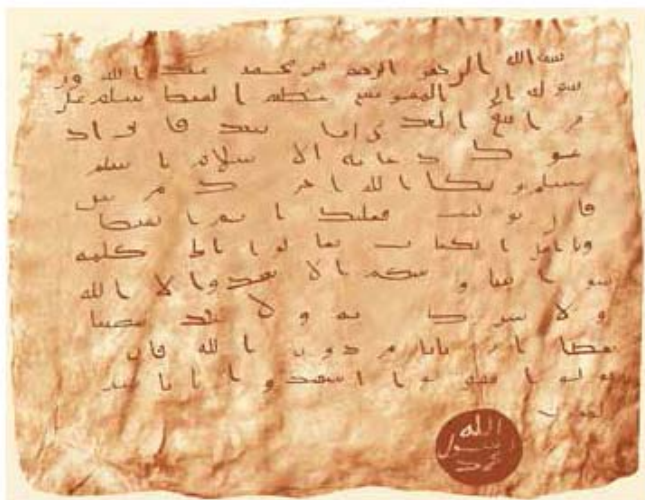 بسم الله الرحمن الرحيم من محمد عبد الله ور
سوله الى المقوقس عظيم القبط سلام على
من اتبع الهدى اما بعد فانى اد
عوك بدعاية الاسلام اسلم
تسلم يؤتك الله اجرك مرتين
فان توليت فعليك اثم القبط
ويا اهل الكتاب تعالوا الى كلمة
سوا بيننا وبينكم الا نعبد الا الله
ولا نشرك به ولا يتخذ بعضنا
بعضا اربابا من دون الله فان
تولوا فقولوا اشهدوا بانا مس
لمون
الله
رسول
محمد